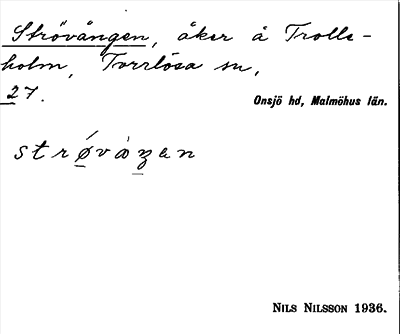 Strövången, åker å Trolle-
holm, Torrlösa sn,
27. Onsjö hd, Malmöhus län.
strǿvȧŋen
NILS NILSSON 1936.